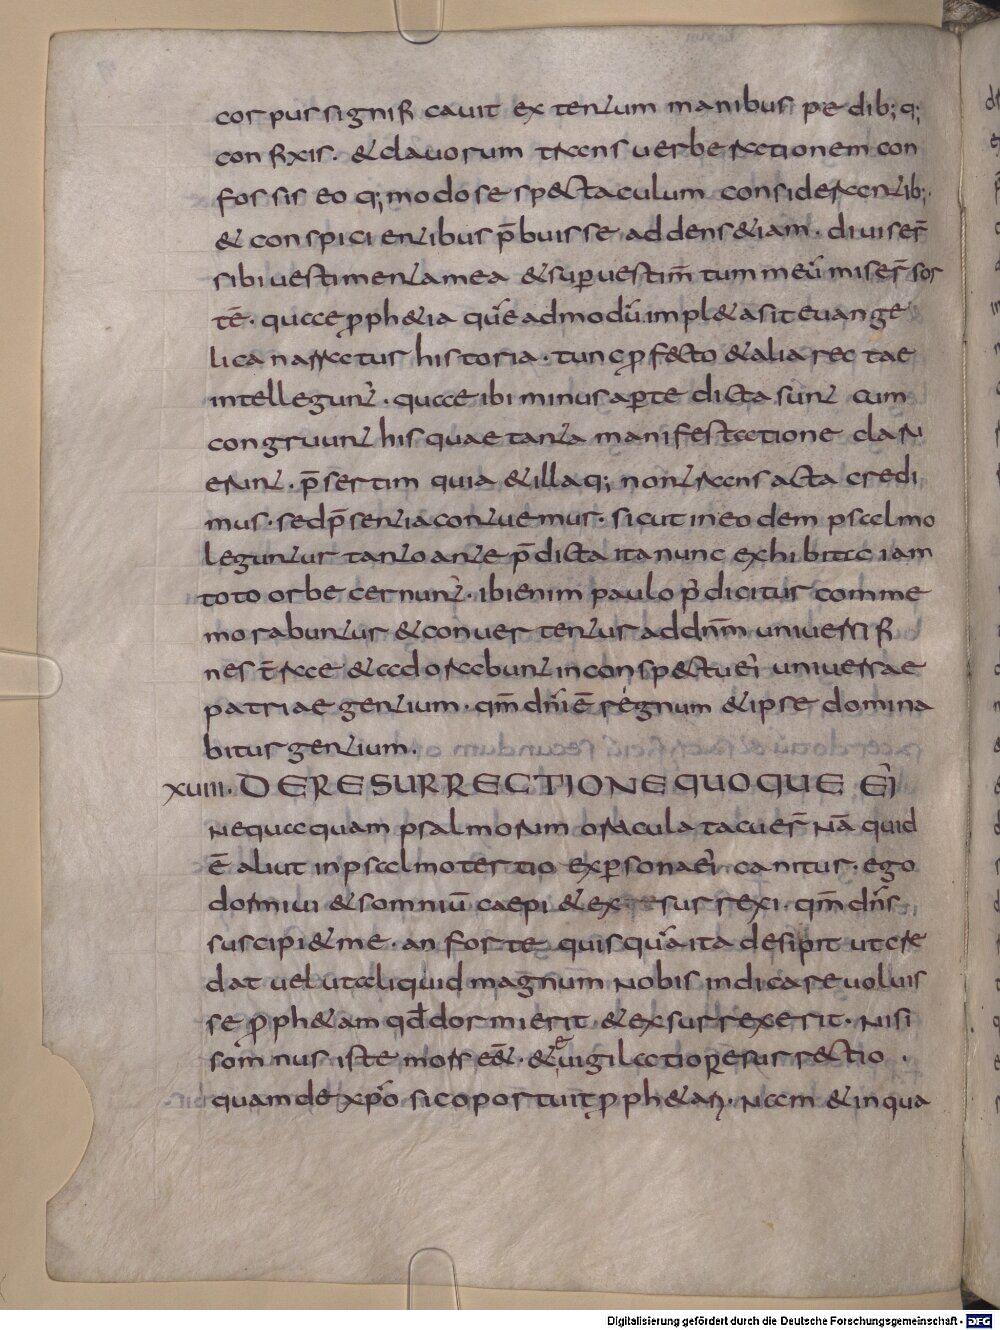 corpus significavit extentum manibus pedib;q;
confixis. & clavorum transuerberationem con
fossis eoq; modo se spectaculum considerantib;.
& conspicientibus p̄buisse addens &iam. diviser̄
sibi vestimenta mea & sup vestim̄tum meū miser̄ sor
tē. quae proph&ia quēadmodū impl&a sit evange
lica narratur historia. tunc profecto & alia recte
intellegunt̄. quae ibi minus aperte dicta sunt cum
congruunt his quae tanta manifestatione claru
erunt. p̄sertim quia & illa q; non transacta credi
mus. sed p̄sentia contuemur. sicut in eodem psalmo
leguntur tanto ante p̄dicta ita nunc exhibita iam
toto orbe cernunt̄. ibi enim paulo p̄ dicitur comme
morabuntur & convertentur ad dn̄m universi fi
nes t̄rae & adorabunt in conspectu ei' universae
patriae gentium. qm̄ dn̄i ē regnum & ipse domina
bitur gentium.
XVIII. DE RESURRECTIONE QUOQUE EI'
nequaquam psalmorum oracula tacuer̄ nā quid
ē aliut in psalmo tertio ex persona ei' canitur. ego
dormivi & somniū caepi & exresurrexi. qm̄ dn̄s
suscipi& me. an forte quisquā ita desipit ut cre
dat vel ut aliquid magnum nobis indicare voluis
se proph&am qd̄ dormierit & exsurrexerit. nisi
somnus iste mors eē&. & evigilatio resurrectio.
quam de xp̄o sic oportuit proph&ari. nam & in qua
Digitalisierung gefördert durch die Deutsche Forschungsgemeinschaft - DFG